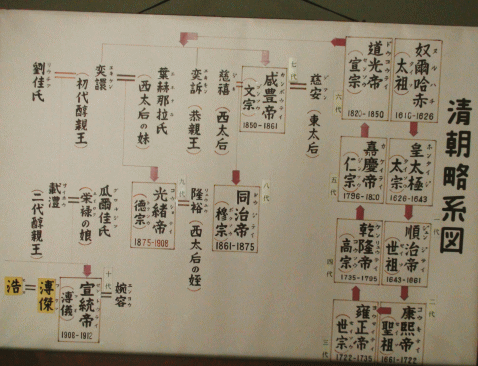 清朝略系図
奴爾哈赤
太祖
1616-1626
皇太極
太宗
1626-1643
順治帝
世祖
1643-1661
二代
康熙帝
聖祖
1661-1722
三代
雍正帝
世宗
1722-1735
四代
乾隆帝
高宗
1735-1795
五代
嘉慶帝
仁宗
六代
道光帝
宣宗
1820-1850
七代
慈安(東太后)
咸豊帝
文宗
1850-1861
慈禧(西太后)
奕訢(恭親王)
葉赫那拉氏
(西太后の妹)
奕譞
(初代醇親王)
劉佳氏
八代
同治帝
(穆宗)
1861-1875
隆裕(西太后の姪)
九代
光緒帝
(徳宗)
1875-1908
瓜爾佳氏
(栄禄の娘)
載灃
(二代醇親王)
十代
婉容
宣統帝
(溥儀)
1908-1912
溥傑
浩